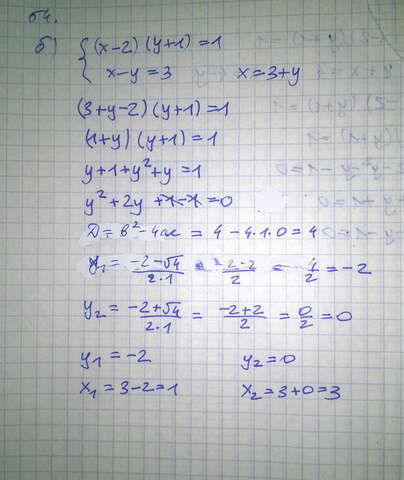 64.
б) { (x-2)(y+1)=1
x-y=3 x=3+y
(3+y-2)(y+1)=1
(1+y)(y+1)=1
y+1+y²+y=1
y²+2y+1-1=0
D=b²-4ac=4-4·1·0=4
y₁=(-2-√4)/(2·1)=(-2-2)/2=-4/2=-2
y₂=(-2+√4)/(2·1)=(-2+2)/2=0/2=0
y₁=-2 y₂=0
x₁=3-2=1 x₂=3+0=3